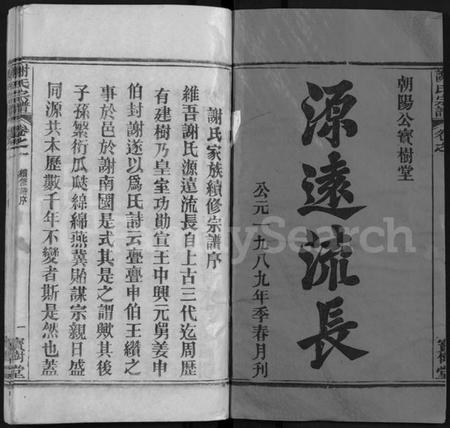 謝氏宗譜 卷之一
寶樹堂
朝陽公寶樹堂
源遠流長
公元一九八九年季春月刊
謝氏家族續修宗譜序
維吾謝氏源遠流長自上古三代迄周歷
有建樹乃皇室功勛宣王中興元舅姜申
伯封謝遂以為氏詩云亹亹申伯王纘之
事於邑於謝南國是式其是之謂歟其後
子孫繁衍瓜瓞綿綿燕冀貽謀宗親日盛
同源共木歷數千年不變者斯是然也蓋
謝氏宗譜 卷之一 續修譜序 一 寶樹堂
MySearch